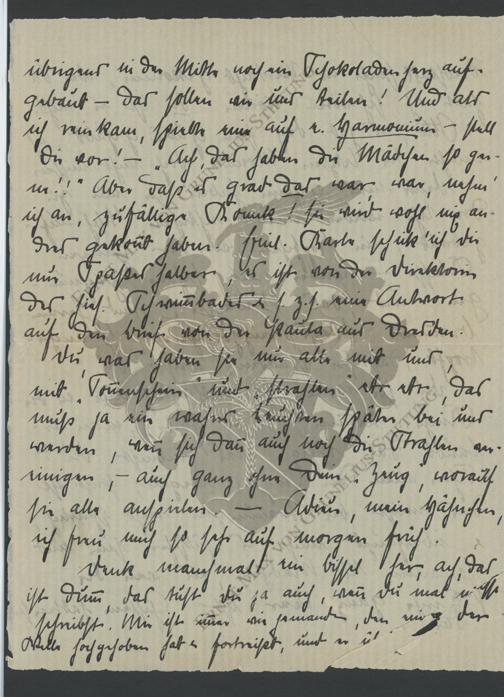 übrigens in der Mitte noch ein Schokoladenherz auf-
gebaut – das sollen wir uns teilen! Und als
ich reinkam, spielte eine auf e. Harmonium – stell
Dir vor! – "Ach, das haben die Mädchen so ger-
ne!!" Aber daß es grad das war war, nehm'
ich an, zufällige Komik! Sie wird wohl nix an-
dres gekonnt haben. Einl. Karte schick' ich Dir
nur Spaßes halber, es ist von der Direktorin
des hies. Schwimmbades u. s. z. s. eine Antwort
auf den Brief von der Paula aus Dresden.
Du, was haben sie nur alle mit uns,
mit "Sonnenschein" und "Strahlen" etc etc, das
muß ja ein wahres Leuchten später bei uns
werden, wenn sich dann auch noch die Strahlen ver-
einigen, – auch ganz ohne dem "Zeug", worauf
sie alle anspielen. — Adieu, mein Hähnchen,
ich freu mich so sehr auf morgen früh.
Denk manchmal ein bissel her, ach, das
ist dumm, das tust Du ja auch, wenn Du mal nicht
schreibst. Mir ist immer wie jemanden, den eine der
Welle hochgehoben hat u. fortreißt, und er is